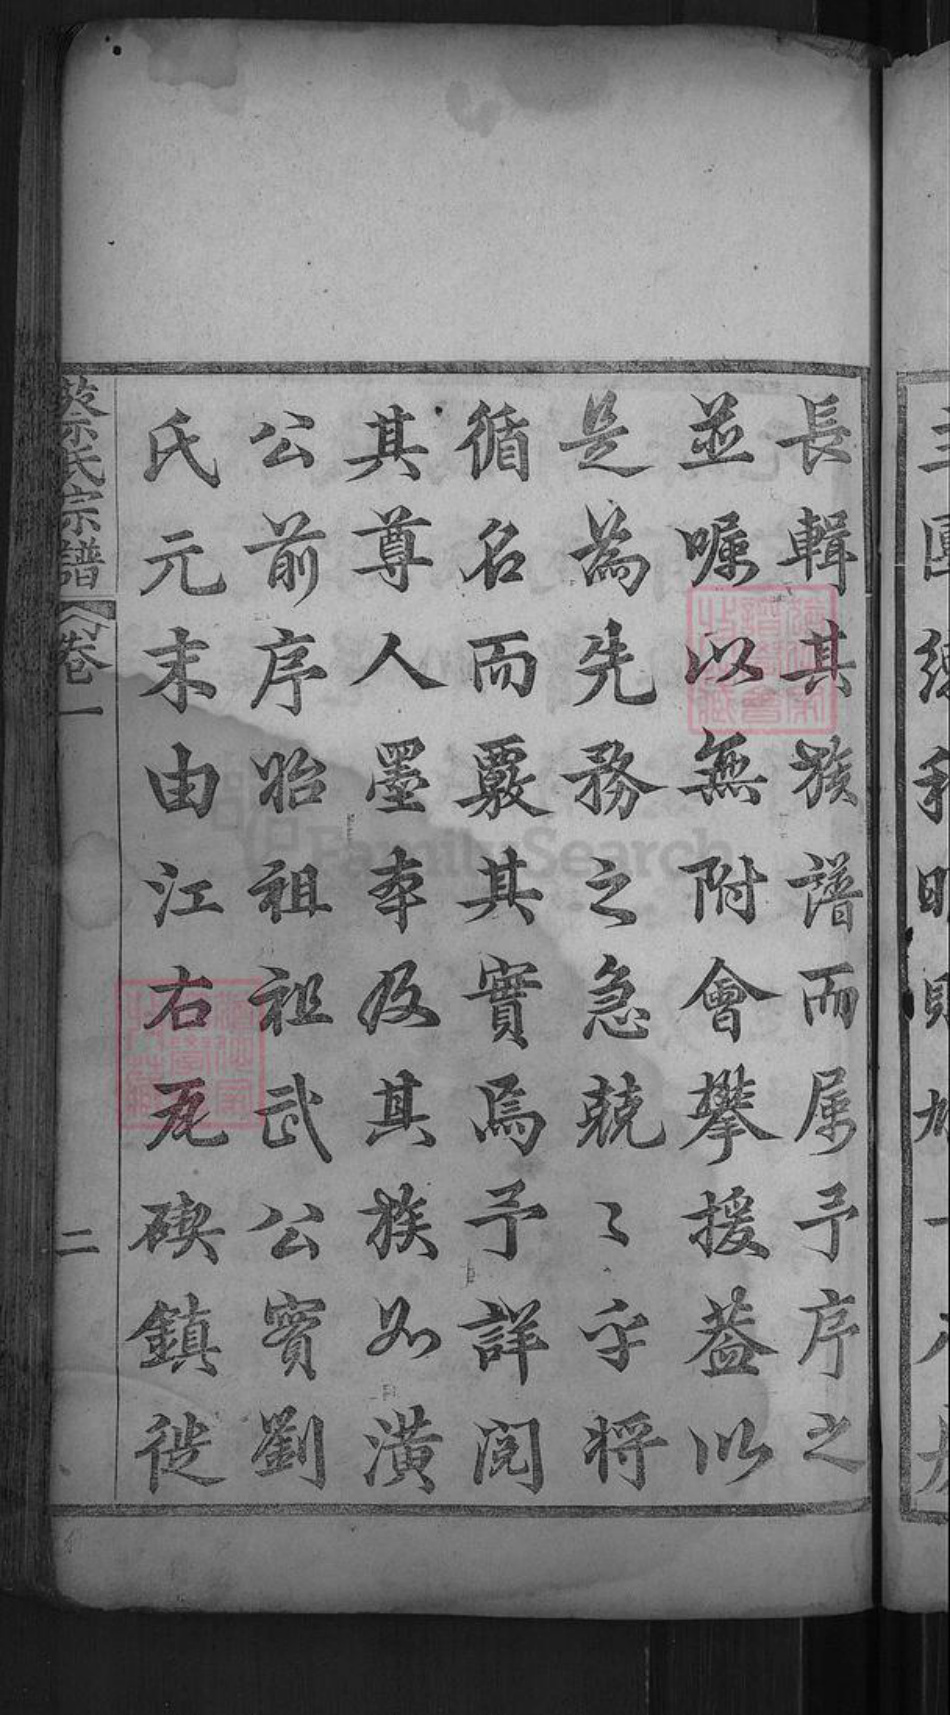 長輯其族譜而属予序之
並嘱以無附會攀援葢以
是為先務之急兢〻乎将
循名而覈其實焉予詳閲
其尊人墨夲及其族如潢
公前序始祖祖武公實劉
氏元末由江右瓦磜鎮徙
蔡氏宗譜
卷一
二
FamilySearch